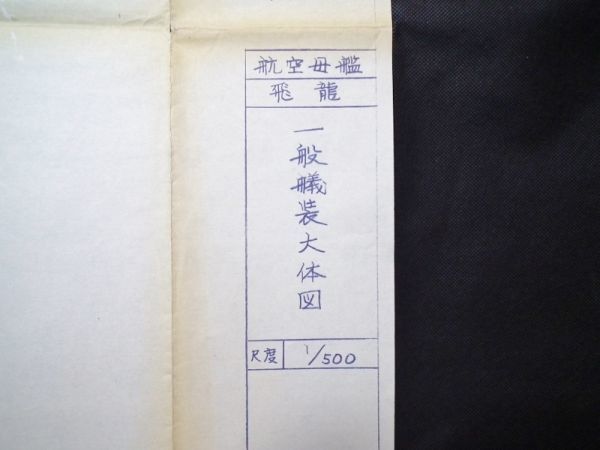 航空母艦
飛龍
一般艤装大体図
尺度 1/500